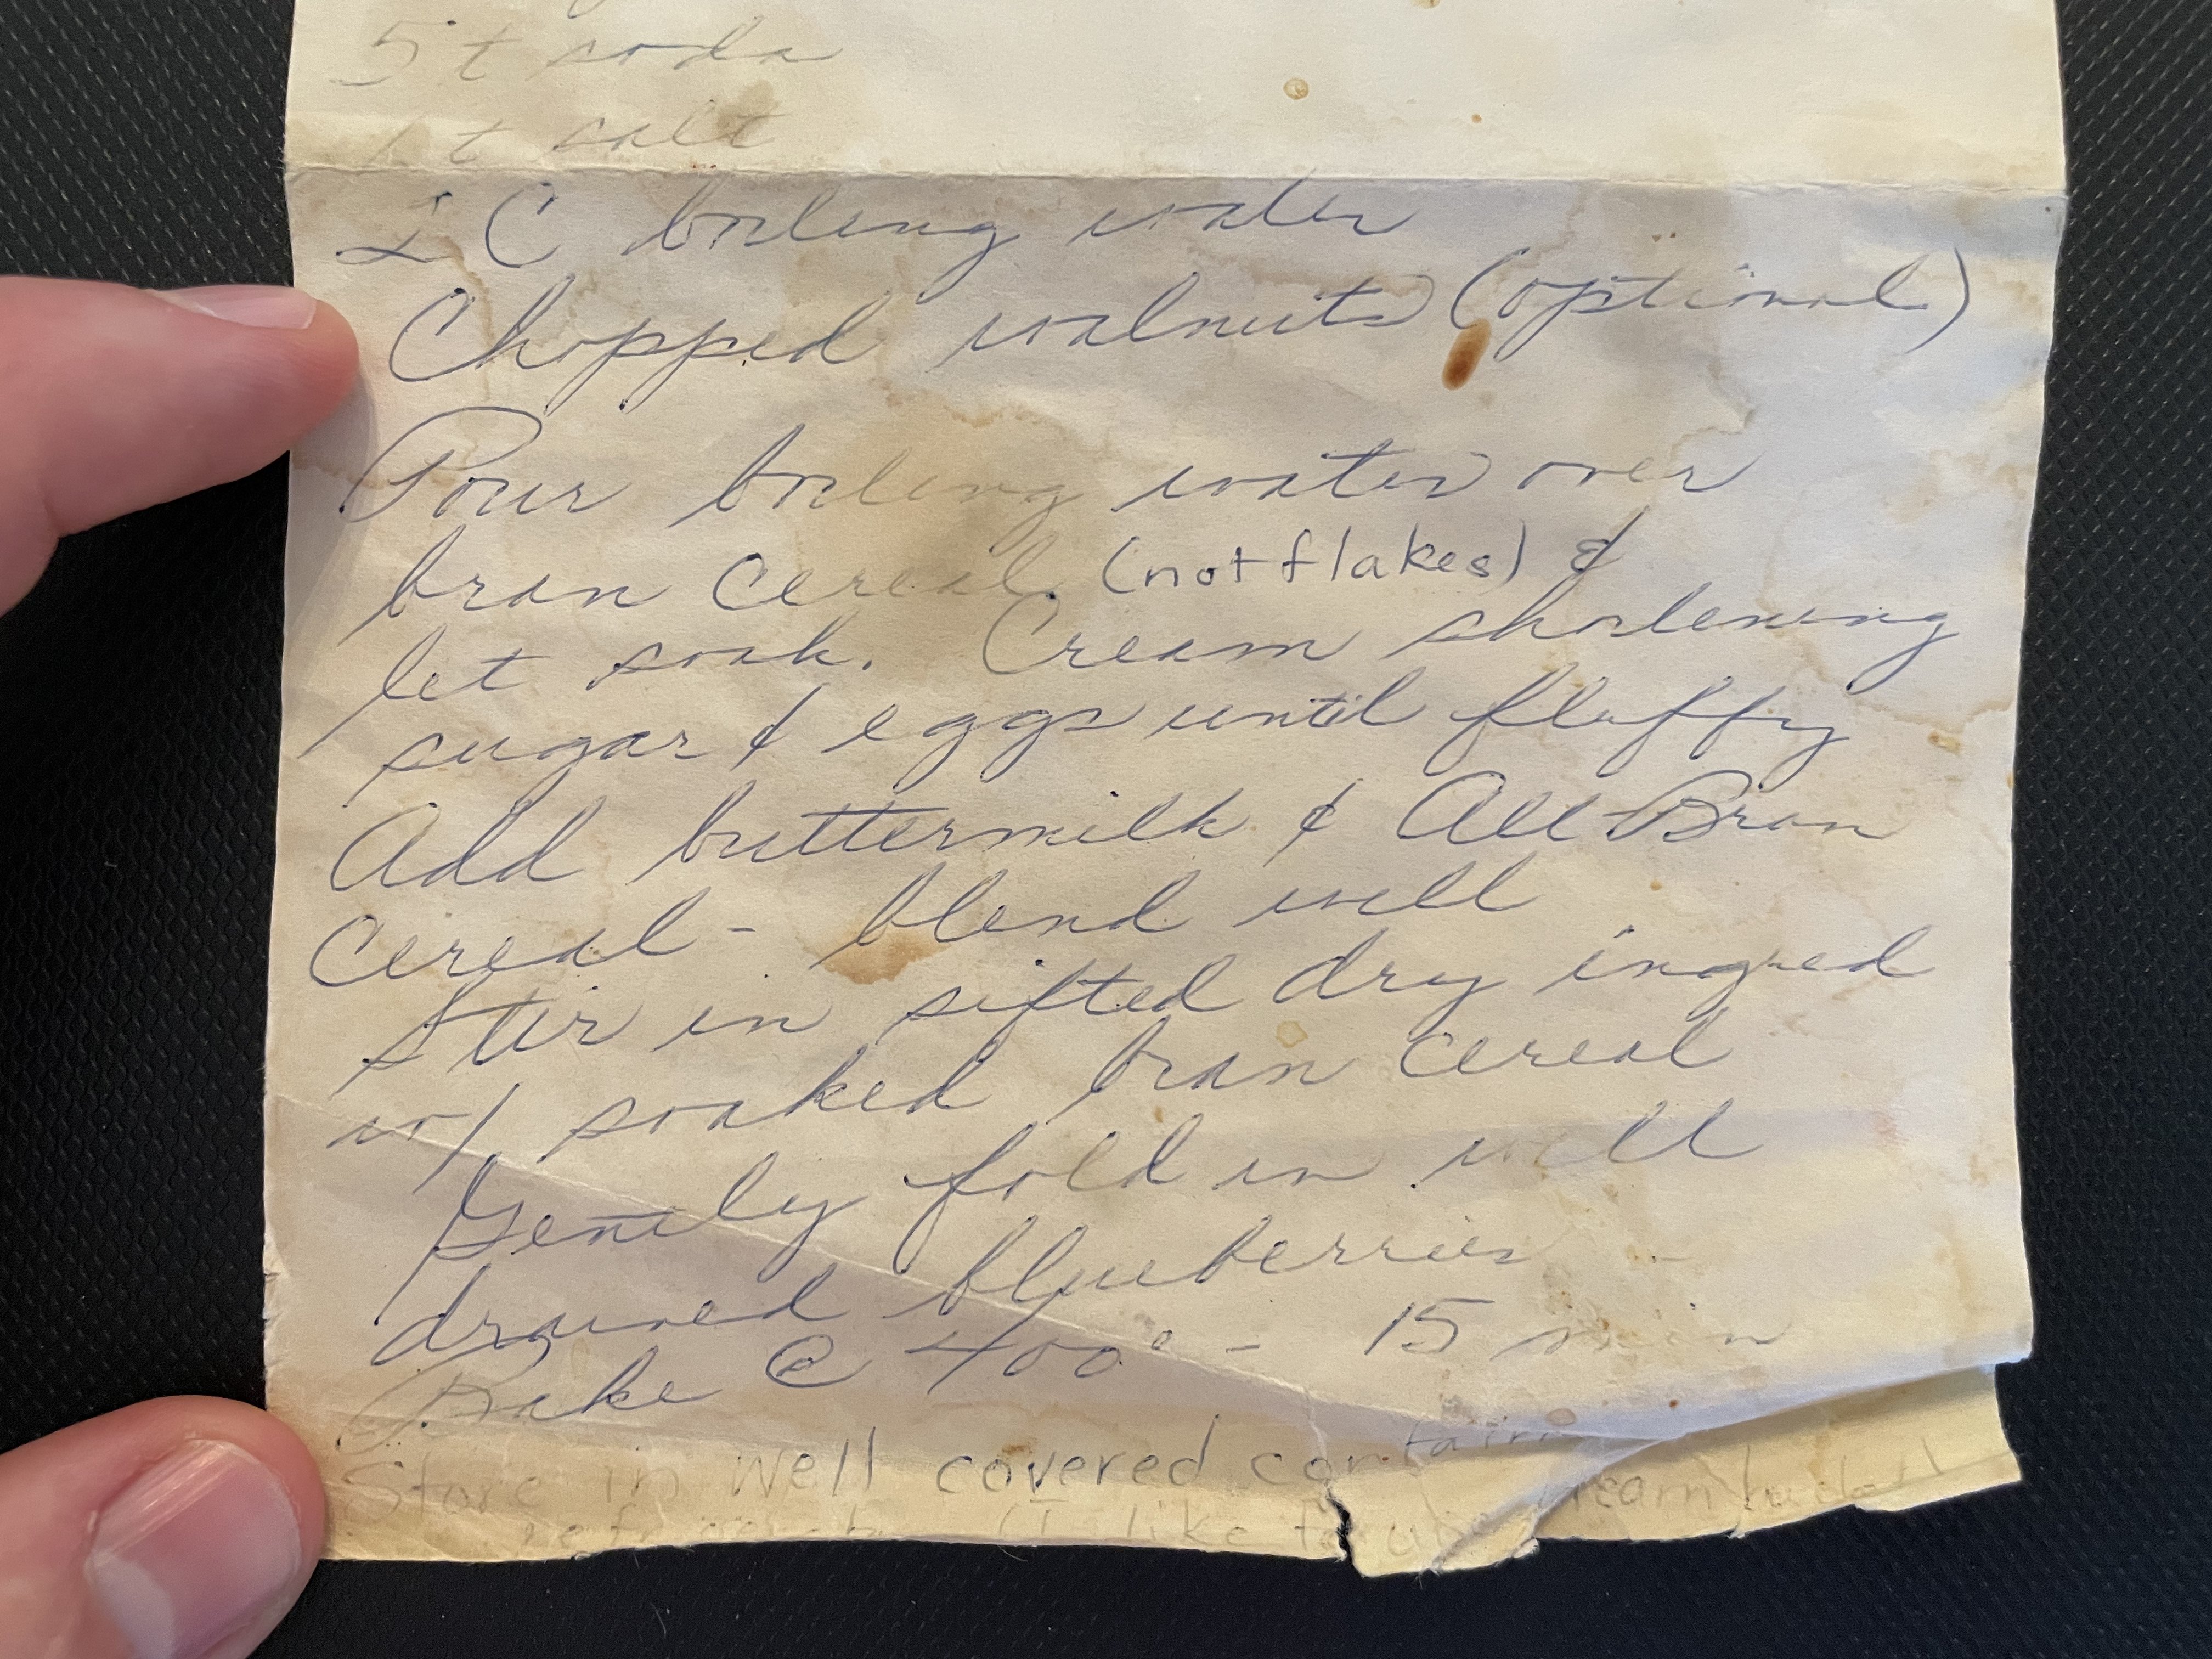 5 t soda
1 t salt
2 C boiling water
Chopped walnuts (optional)
Pour boiling water over
bran cereal. (not flakes) &
let soak. Cream shortening
sugar & eggs until fluffy
Add buttermilk & All-Bran
Cereal - blend well
Stir in sifted dry ingred
w/ soaked bran cereal
Gently fold in well
drained blueberries
Bake @ 400° - 15 min
Store in well covered
(I like to